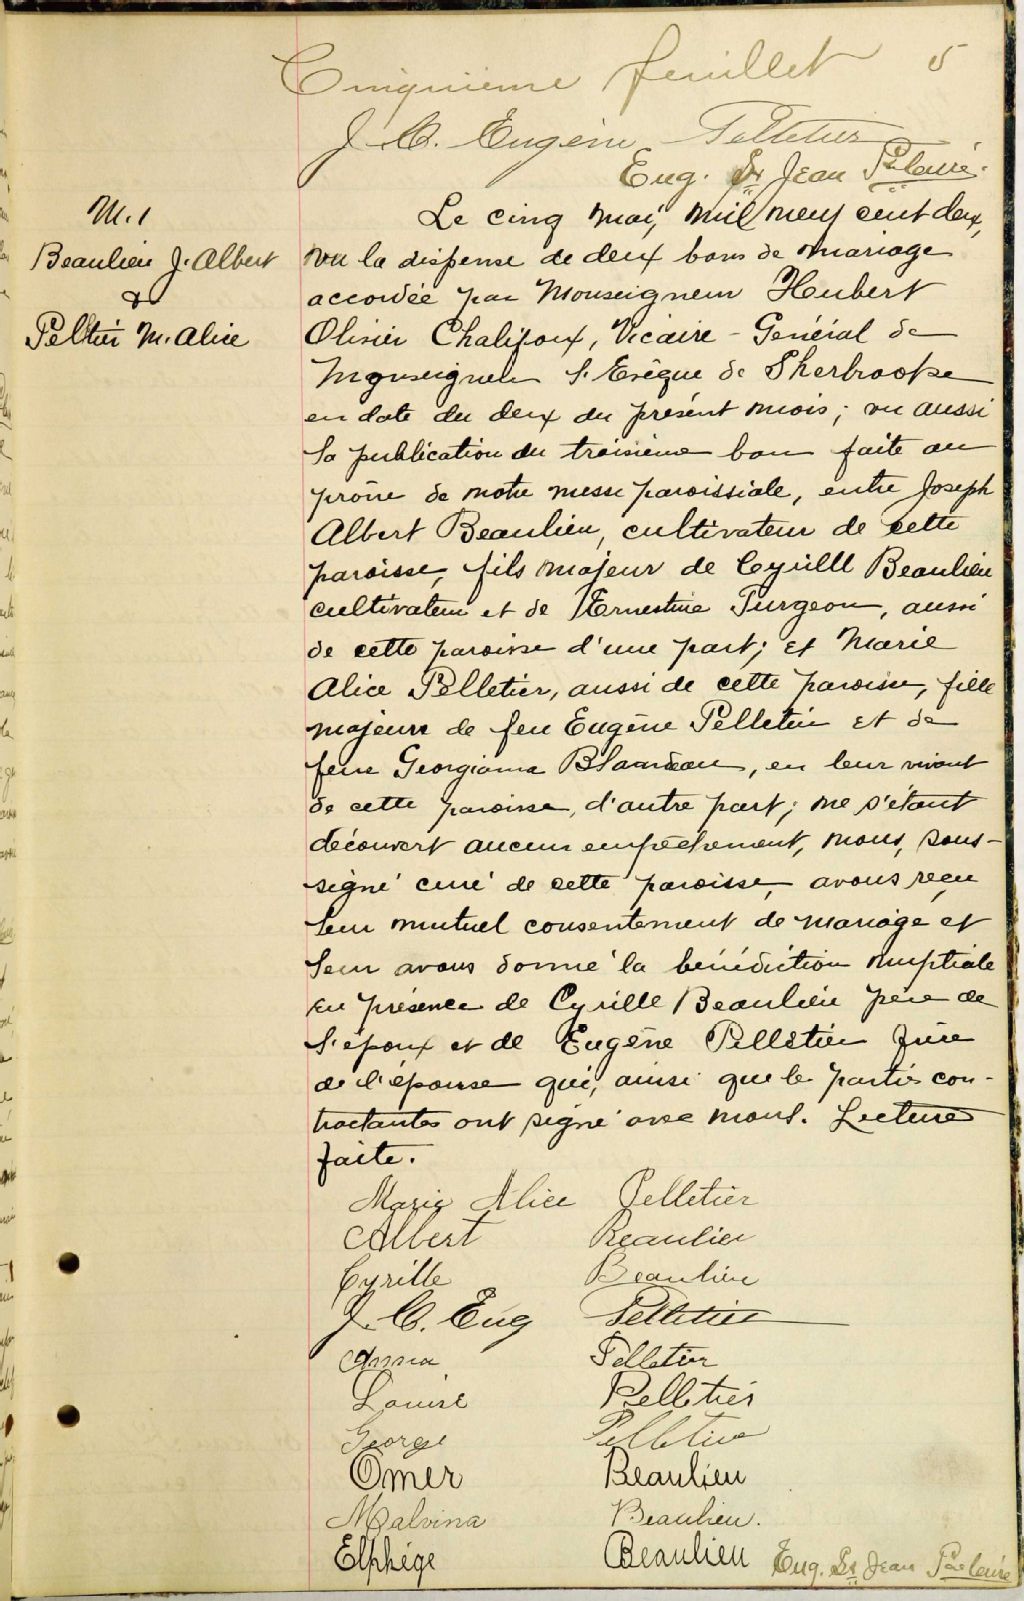 Cinquième feuillet 5
J. C. Eugène Pelletier
Eug. St Jean Ptre Curé.
M. 1
Beaulieu J. Albert
&
Peltier M. Alice
Le cinq mai, mil neuf cent deux,
vu la dispense de deux bans de mariage
accordée par Monseigneur Hubert
Olivier Chalifoux, Vicaire-Général de
Monseigneur l'Evêque de Sherbrooke
en date du deux du présent mois; vu aussi
la publication du troisième ban faite au
prône de notre messe paroissiale, entre Joseph
Albert Beaulieu, cultivateur de cette
paroisse, fils majeur de Cyrille Beaulieu
cultivateur et de Ernestine Turgeon, aussi
de cette paroisse d'une part; et Marie
Alice Pelletier, aussi de cette paroisse, fille
majeure de feu Eugène Pelletier et de
feue Georgianna, en leur vivant
de cette paroisse, d'autre part; ne s'étant
découvert aucun empêchement, nous, sous-
signé curé de cette paroisse, avons reçu
leur mutuel consentement de mariage et
leur avons donné la bénédiction nuptiale
en présence de Cyrille Beaulieu père de
l'époux et de Eugène Pelletier frère
de l'épouse qui, ainsi que les parties con-
tractantes ont signé avec nous. Lecture
faite.
Marie Alice Pelletier
Albert Beaulieu
Cyrille Beaulieu
J. C. Eug Pelletier
Anna Pelletier
Louise Pelletier
George Pelletier
Omer Beaulieu
Malvina Beaulieu.
Elphége Beaulieu
Eug. St Jean Ptre Curé